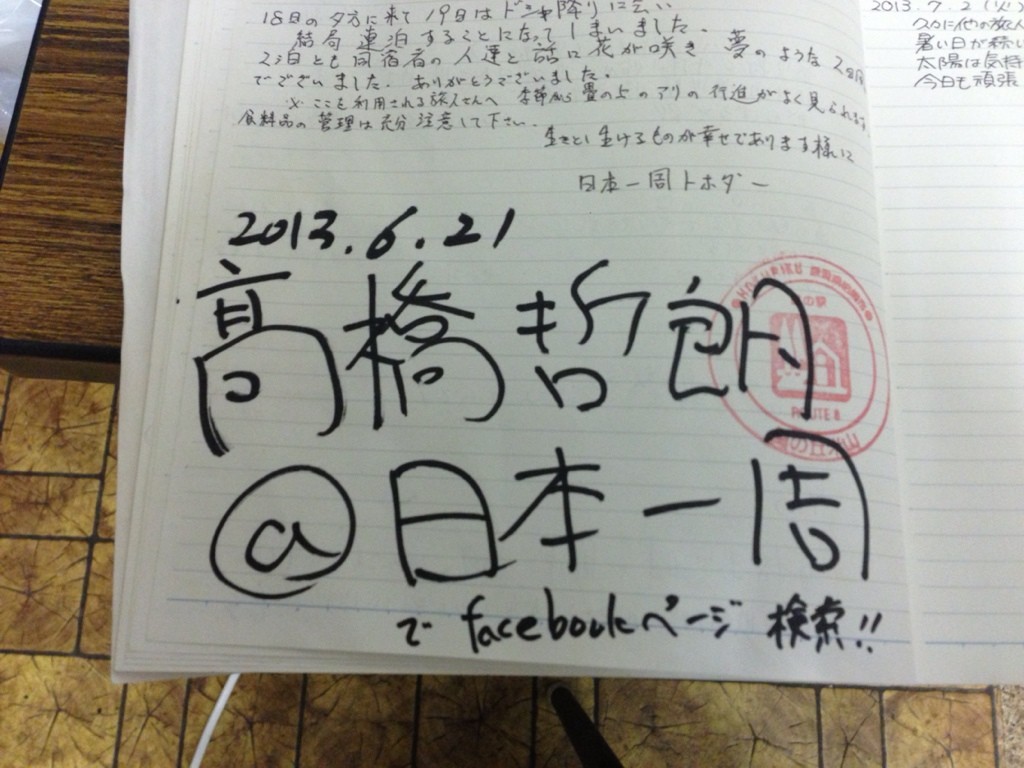 18日の夕方に来て19日はドシャ降りに会い
結局連泊することになってしまいました。
2泊とも同宿者の人達と話に花が咲き 夢のような2日間
でございました。ありがとうございました。
※ここを利用される旅人さんへ 季節がら畳の上のアリの行進がよく見られます
食料品の管理は充分注意して下さい。
生きとし生けるものが幸せであります様に
日本一周トホダー
2013.6.21
高橋哲朗
@日本一周
で facebookページ 検索!!
HOKURIKU
の駅
ROUTE 8
2013.7.2(火)
久々に他の旅人
暑い日が続い
太陽は気持
今日も頑張